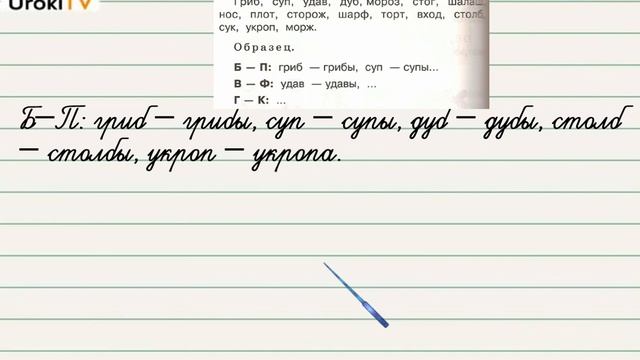 UrokiTV
гриб, суп, удав, дуб, мороз, стог, шалаш,
нос, плот, сторож, шарф, торт, вход, столб,
сук, укроп, морж.
Образец.
Б — П: гриб — грибы, суп — супы...
В — Ф: удав — удавы, ...
Г — К: ...
Б—П: гриб — грибы, суп — супы, дуб — дубы, столб
— столбы, укроп — укропа.